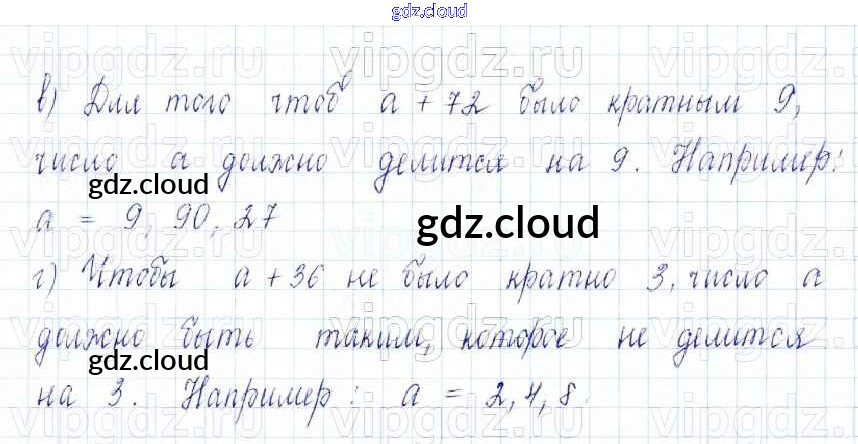 gdz.cloud
в) Для того чтоб a + 72 было кратным 9,
число a должно делится на 9. Например:
gdz.cloud
a = 9, 90, 27
gdz.cloud
г) Чтобы a + 36 не было кратно 3, число a
должно быть таким, которое не делится
gdz.cloud
на 3. Например: a = 2, 4, 8.